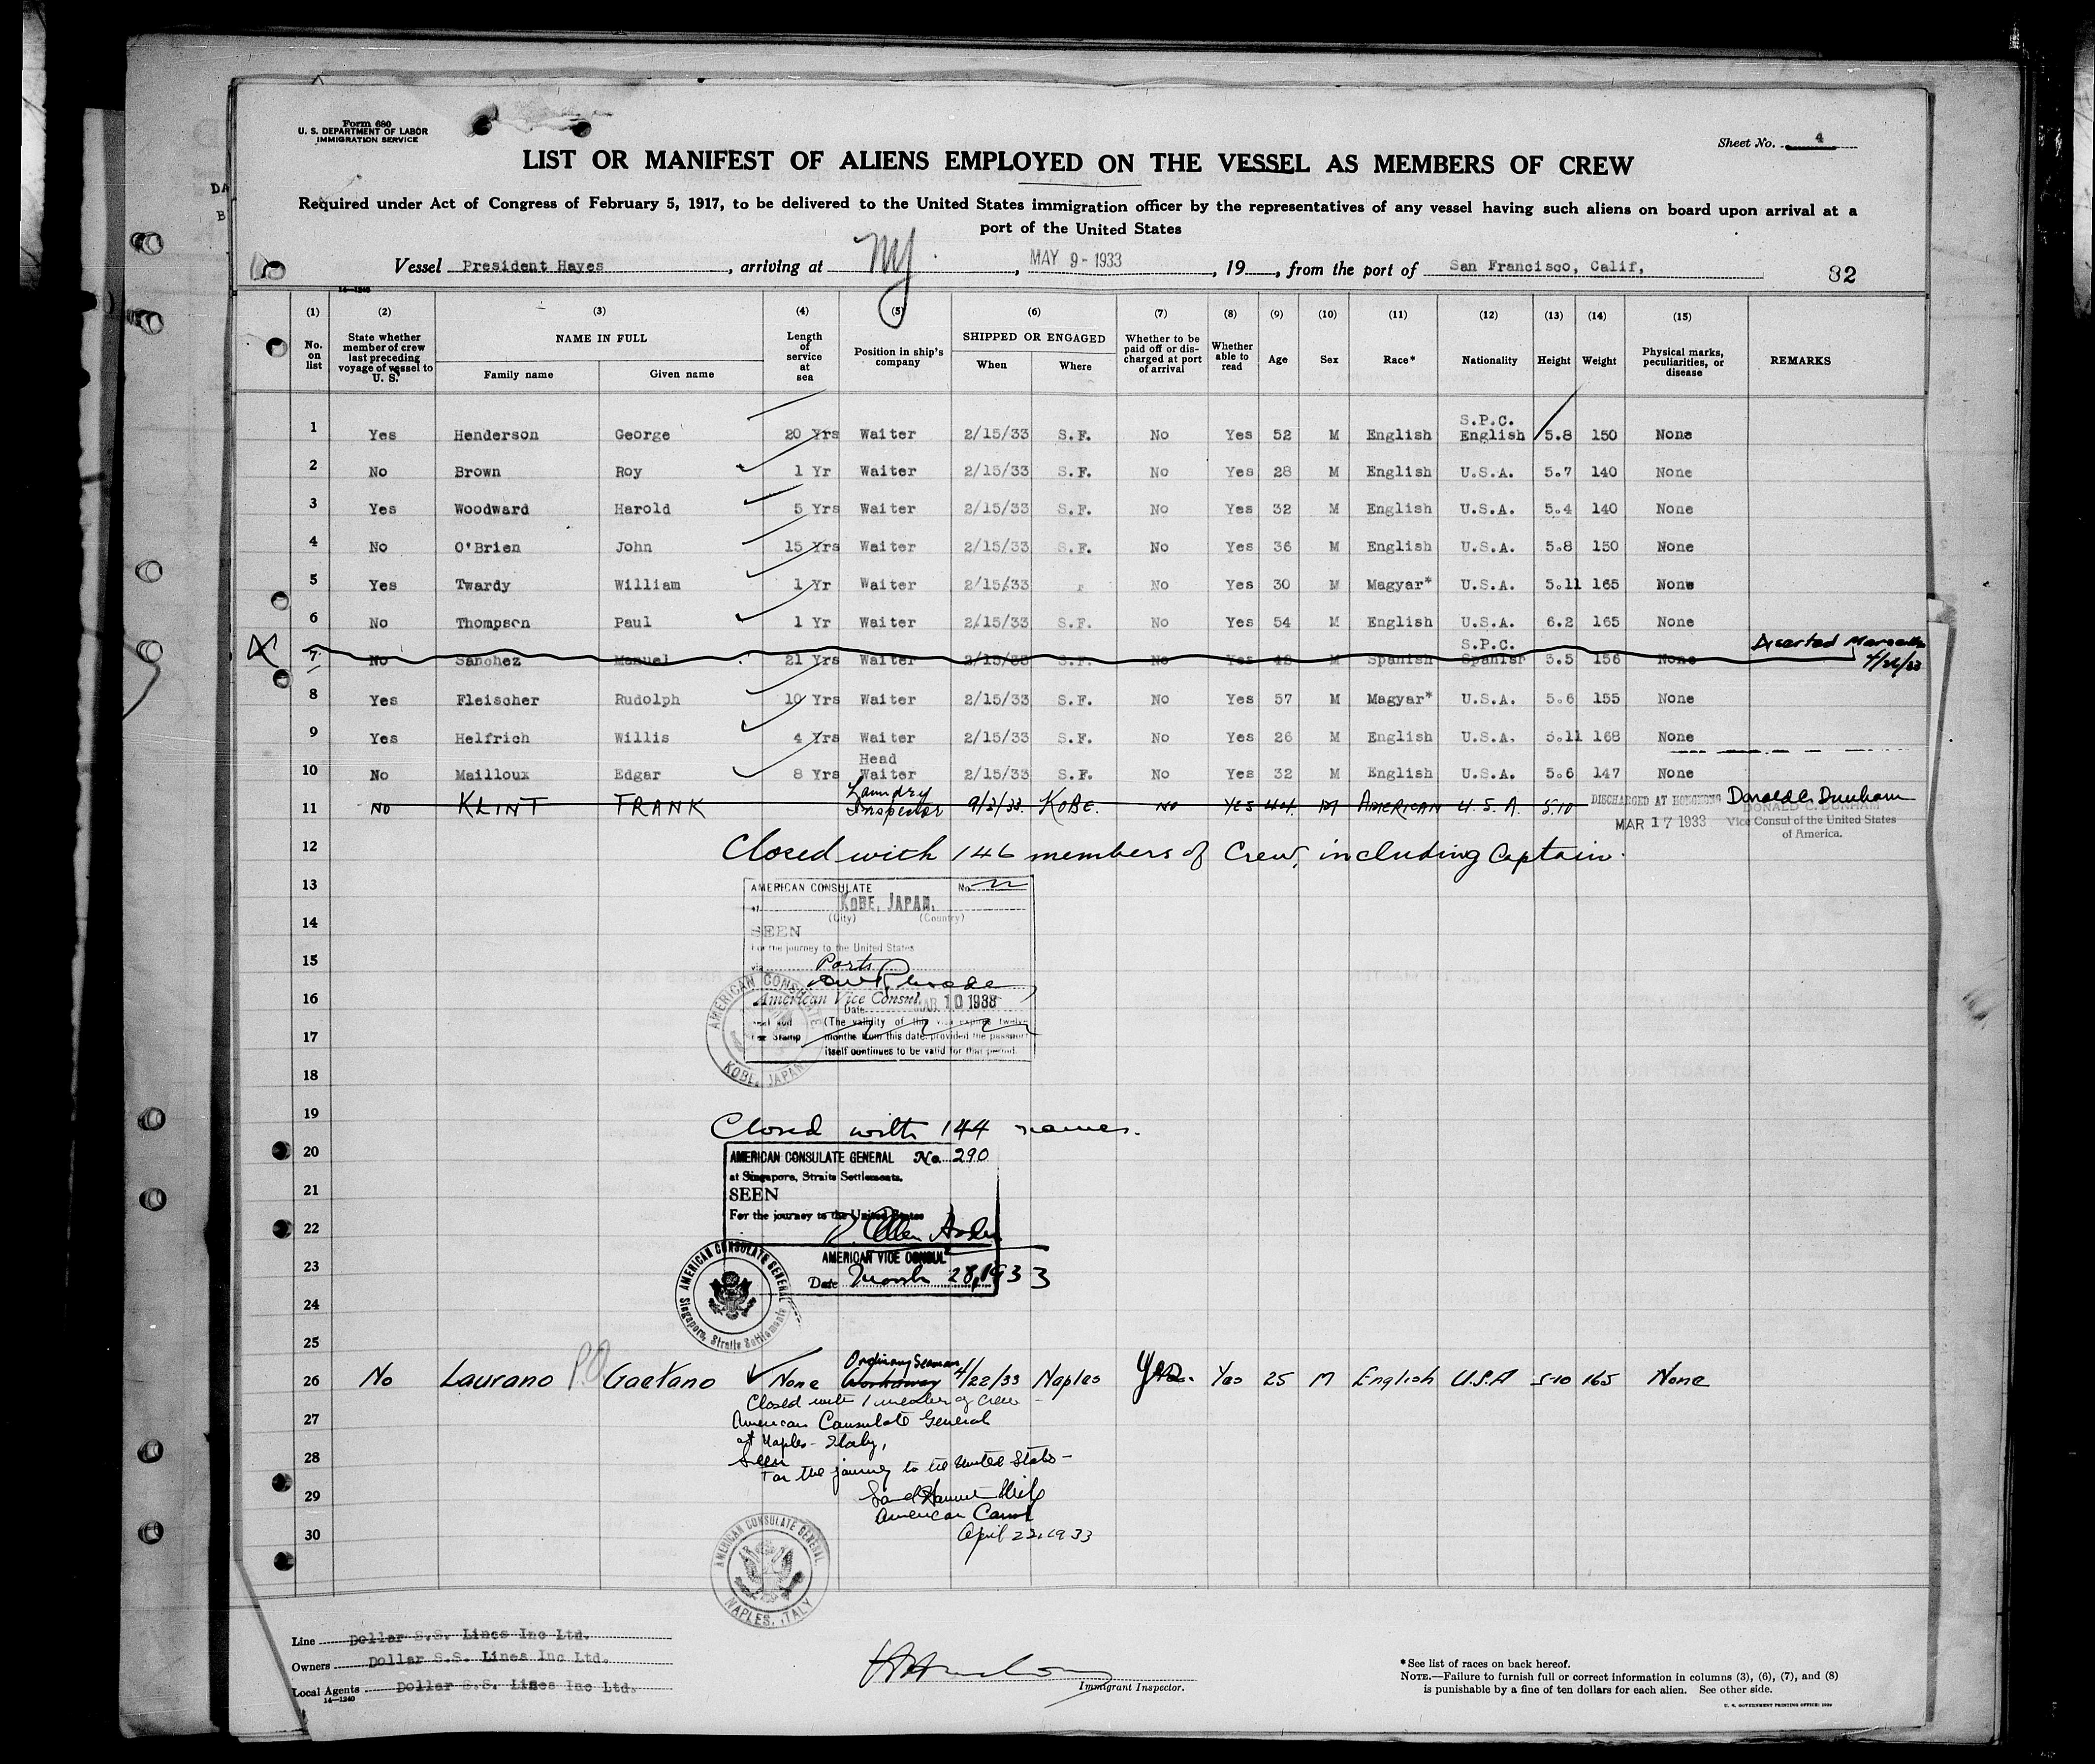 Form 680
U. S. DEPARTMENT OF LABOR
IMMIGRATION SERVICE
Sheet No. 4
LIST OR MANIFEST OF ALIENS EMPLOYED ON THE VESSEL AS MEMBERS OF CREW
Required under Act of Congress of February 5, 1917, to be delivered to the United States immigration officer by the representatives of any vessel having such aliens on board upon arrival at a
port of the United States
Vessel President Hayes, arriving at NY, MAY 9 - 1933, 19, from the port of San Francisco, Calif, 82
14—1240
(1) (2) (3) (4) (5) (6) (7) (8) (9) (10) (11) (12) (13) (14) (15)
No. on list
State whether member of crew last preceding voyage of vessel to U. S.
NAME IN FULL
Family name Given name
Length of service at sea
Position in ship's company
SHIPPED OR ENGAGED
When Where
Whether to be paid off or discharged at port of arrival
Whether able to read
Age Sex Race* Nationality Height Weight
Physical marks, peculiarities, or disease
REMARKS
S.P.C.
1 Yes Henderson George 20 Yrs Waiter 2/15/33 S.F. No Yes 52 M English English 5.8 150 None
2 No Brown Roy 1 Yr Waiter 2/15/33 S.F. No Yes 28 M English U.S.A. 5.7 140 None
3 Yes Woodward Harold 5 Yrs Waiter 2/15/33 S.F. No Yes 32 M English U.S.A. 5.4 140 None
4 No O'Brien John 15 Yrs Waiter 2/15/33 S.F. No Yes 36 M English U.S.A. 5.8 150 None
5 Yes Twardy William 1 Yr Waiter 2/15/33 No Yes 30 M Magyar* U.S.A. 5.11 165 None
6 No Thompson Paul 1 Yr Waiter 2/15/33 S.F. No Yes 54 M English U.S.A. 6.2 165 None
S.P.C. Deserted Marseille
7 No Sanchez Manuel 21 Yrs Waiter 2/15/33 S.F. No Yes 48 M Spanish Spanish 5.5 156 None 4/26/33
8 Yes Fleischer Rudolph 10 Yrs Waiter 2/15/33 S.F. No Yes 57 M Magyar* U.S.A. 5.6 155 None
9 Yes Helfrich Willis 4 Yrs Waiter 2/15/33 S.F. No Yes 26 M English U.S.A. 5.11 168 None
Head
10 No Mailloux Edgar 8 Yrs Waiter 2/15/33 S.F. No Yes 32 M English U.S.A. 5.6 147 None
Laundry
11 NO KLINT FRANK Inspector 9/3/33 KOBE. NO YES 44 M AMERICAN U.S.A. 5.10 DISCHARGED AT HONGKONG Donald C. Dunham
DONALD C. DUNHAM
MAR 17 1933 Vice Consul of the United States
of America.
12 Closed with 146 members of Crew, including Captain.
13 AMERICAN CONSULATE No. 22
at KOBE, JAPAN.
(City) (Country)
14 SEEN
For the journey to the United States
15 via Ports
16 American Vice Consul
Date MAR 10 1933
Seal and Fee Stamp
17 (The validity of this visa expires twelve
months from this date, provided the passport
itself continues to be valid for this period.
AMERICAN CONSULATE
KOBE, JAPAN.
18
19 Closed with 144 names.
20 AMERICAN CONSULATE GENERAL No. 290
at Singapore, Straits Settlements.
21 SEEN
For the journey to the United States
22
AMERICAN VICE CONSUL
23 Date March 28, 1933
AMERICAN CONSULATE GENERAL
Singapore, Straits Settlements
24
25
Ordinary Seaman
26 No Laurano P.O. Gaetano None Workaway 4/22/33 Naples Yes. Yes 25 M English U.S.A 5-10 165 None
Closed with 1 member of crew
27 American Consulate General
at Naples - Italy,
28 Seen
For the journey to the United States -
29
American Consul
30 April 22, 1933
AMERICAN CONSULATE GENERAL
NAPLES, ITALY
Line Dollar S.S. Lines Inc Ltd.
Owners Dollar S.S. Lines Inc Ltd.
Local Agents Dollar S.S. Lines Inc Ltd.
14—1240
Immigrant Inspector.
*See list of races on back hereof.
NOTE.—Failure to furnish full or correct information in columns (3), (6), (7), and (8)
is punishable by a fine of ten dollars for each alien. See other side.